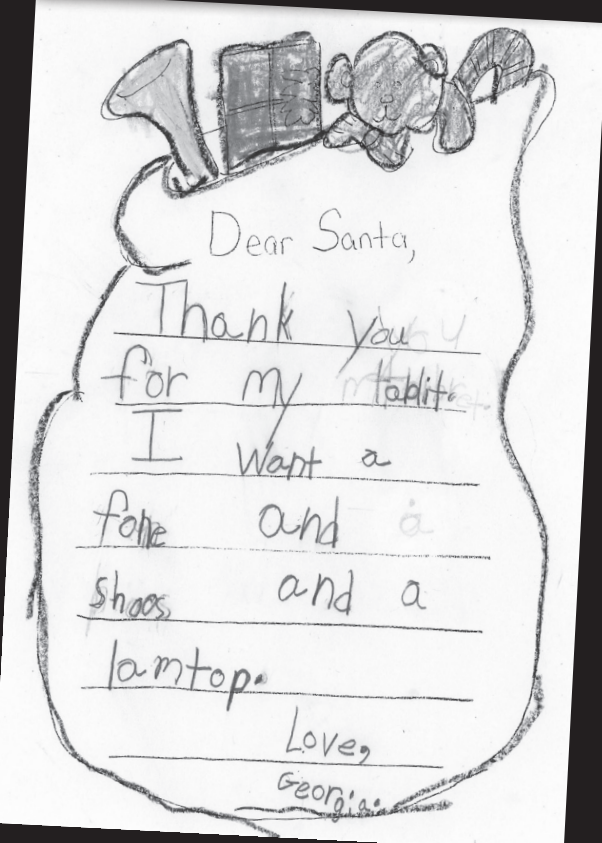 Dear Santa,
Thank you
for my tablit.
I want a
fone and a
shoos and a
lamtop.
Love,
Georgia.